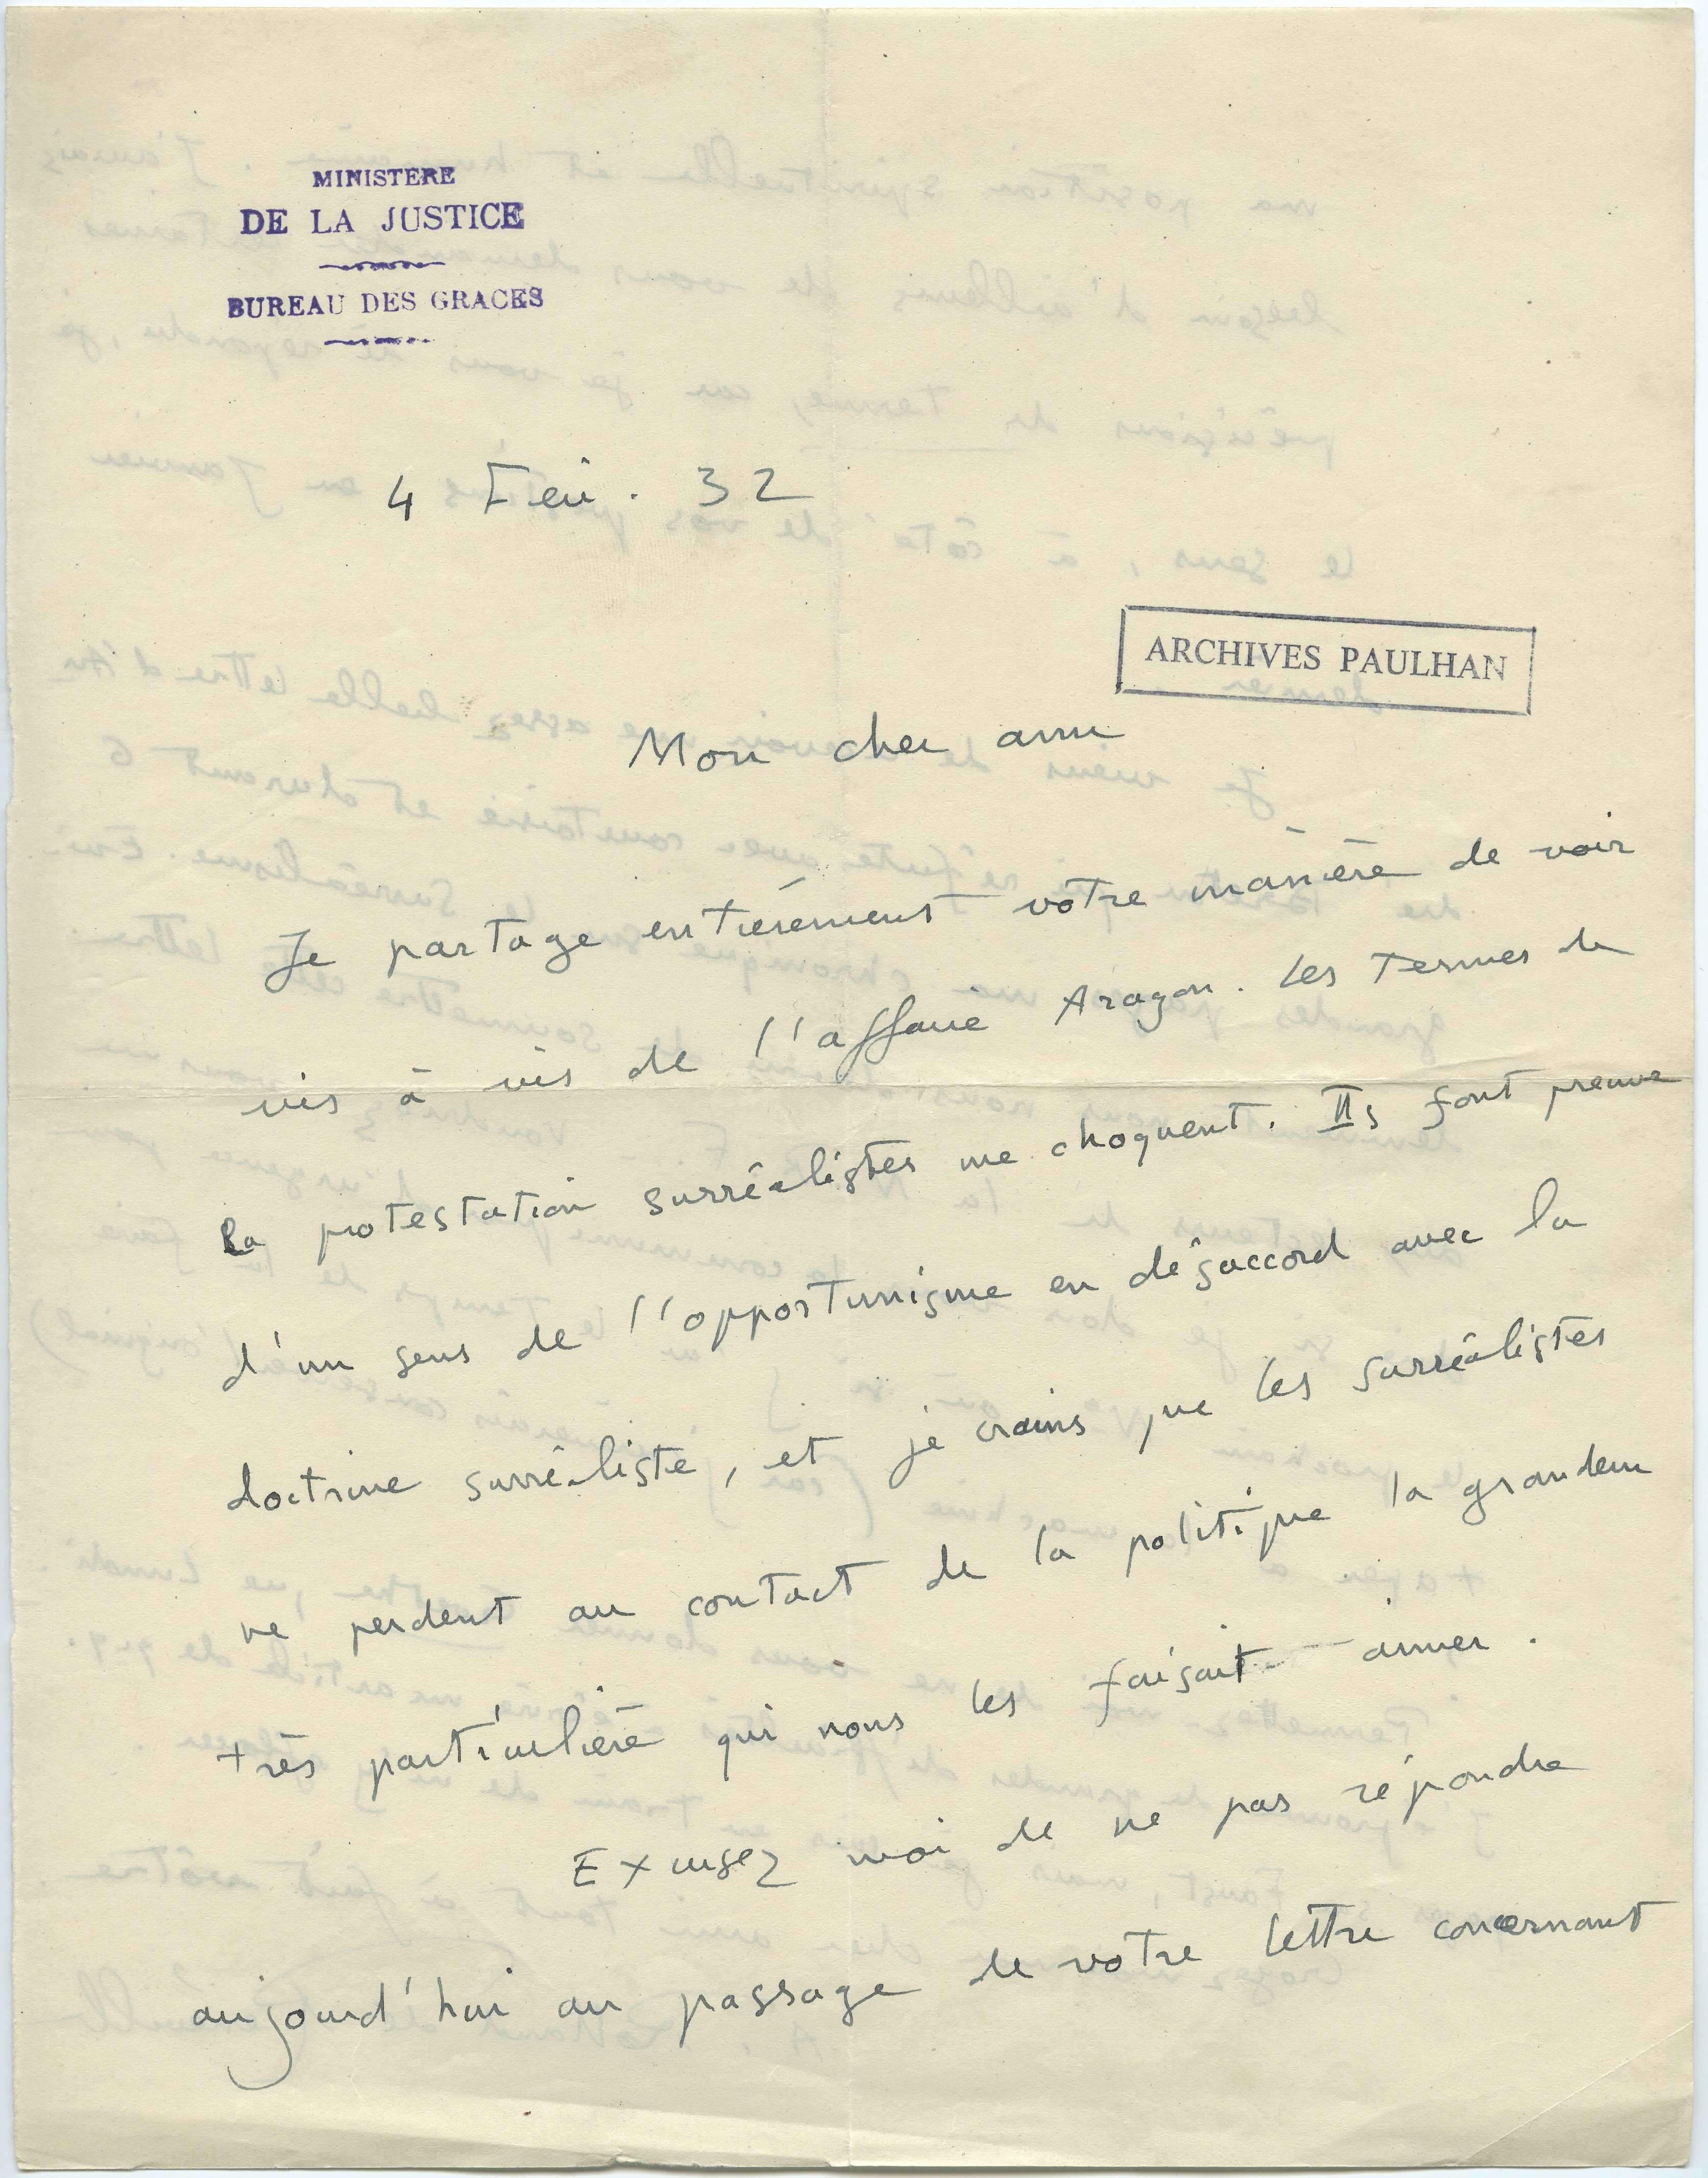 MINISTERE
DE LA JUSTICE
BUREAU DES GRACES
4 Fev. 32
ARCHIVES PAULHAN
Mon cher ami
Je partage entièrement votre manière de voir
vis à vis de l'affaire Aragon. Les termes de
la protestation surréalistes me choquent. Ils font preuve
d'un sens de l'opportunisme en désaccord avec la
doctrine surréaliste, et je crains que les surréalistes
ne perdent au contact de la politique la grandeur
très particulière qui nous les faisait aimer.
Excusez moi de ne pas répondre
aujourd'hui au passage de votre lettre concernant